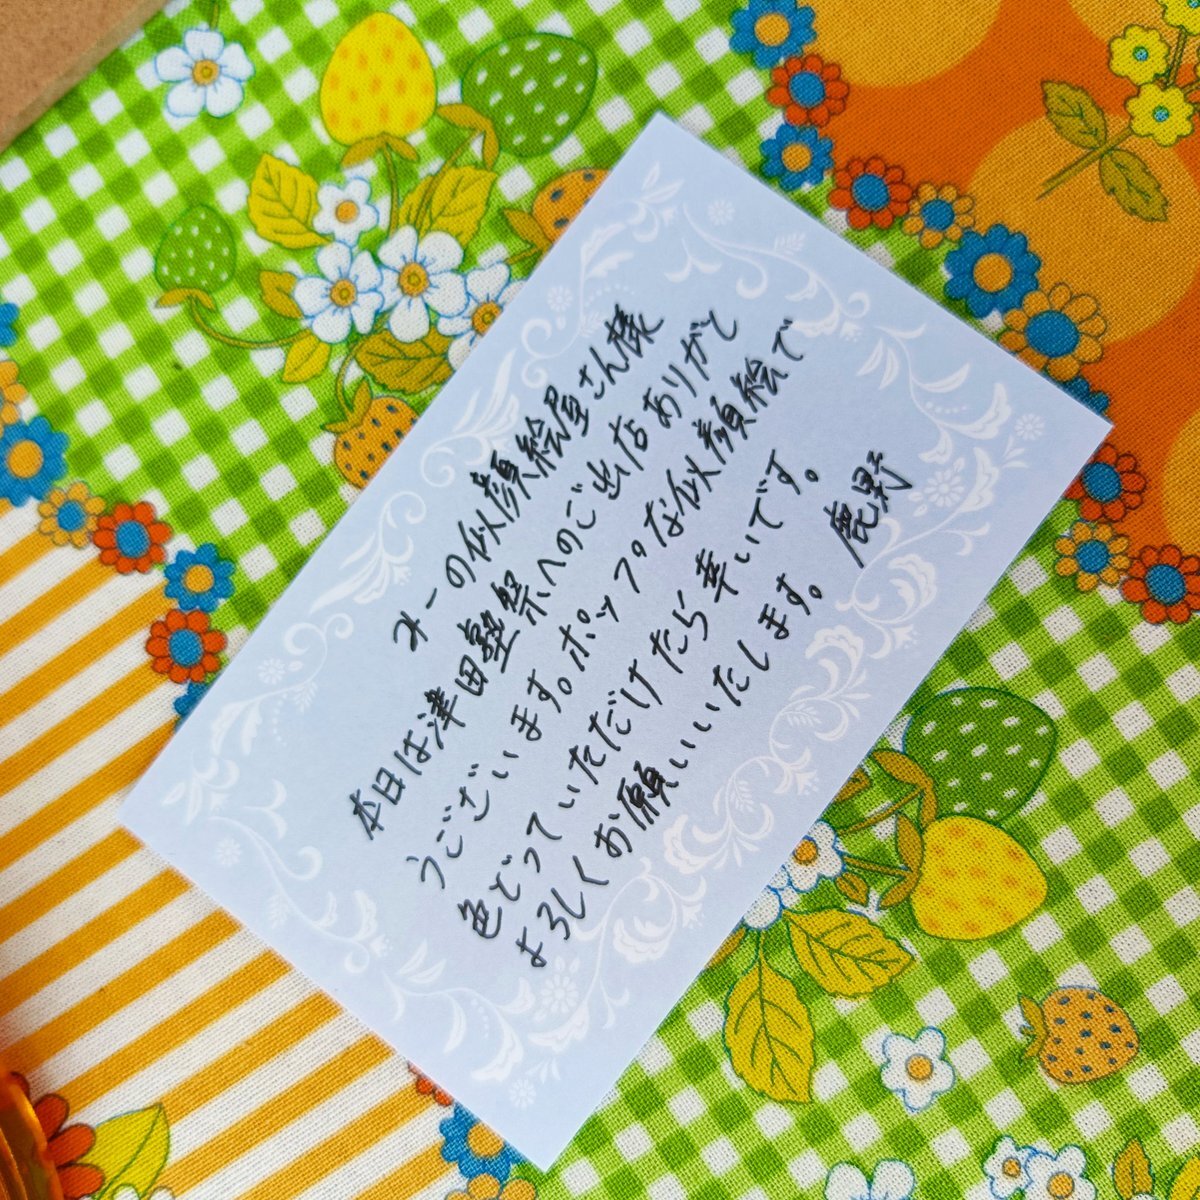 オーの似顔絵屋さん様
本日は津田塾祭へのご出店ありがと
うございます。ポップな似顔絵で
色どっていただけたら幸いです。
よろしくお願いいたします。 鹿野